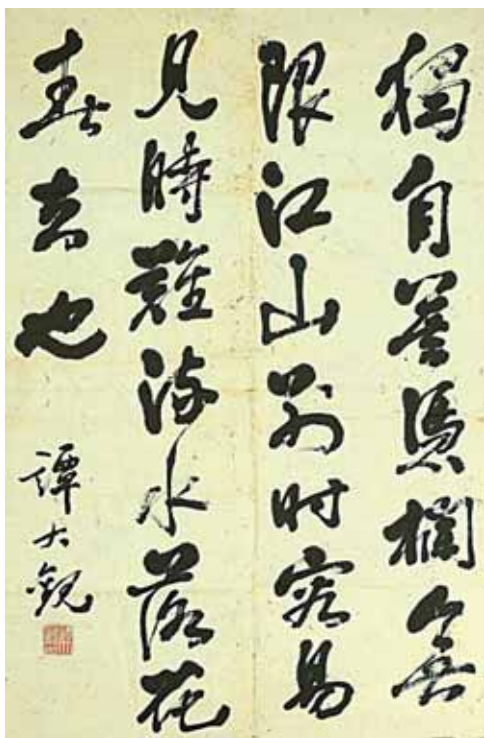 獨自暮憑欄無
限江山別时容易
見時難流水落花
春去也
譚大觀